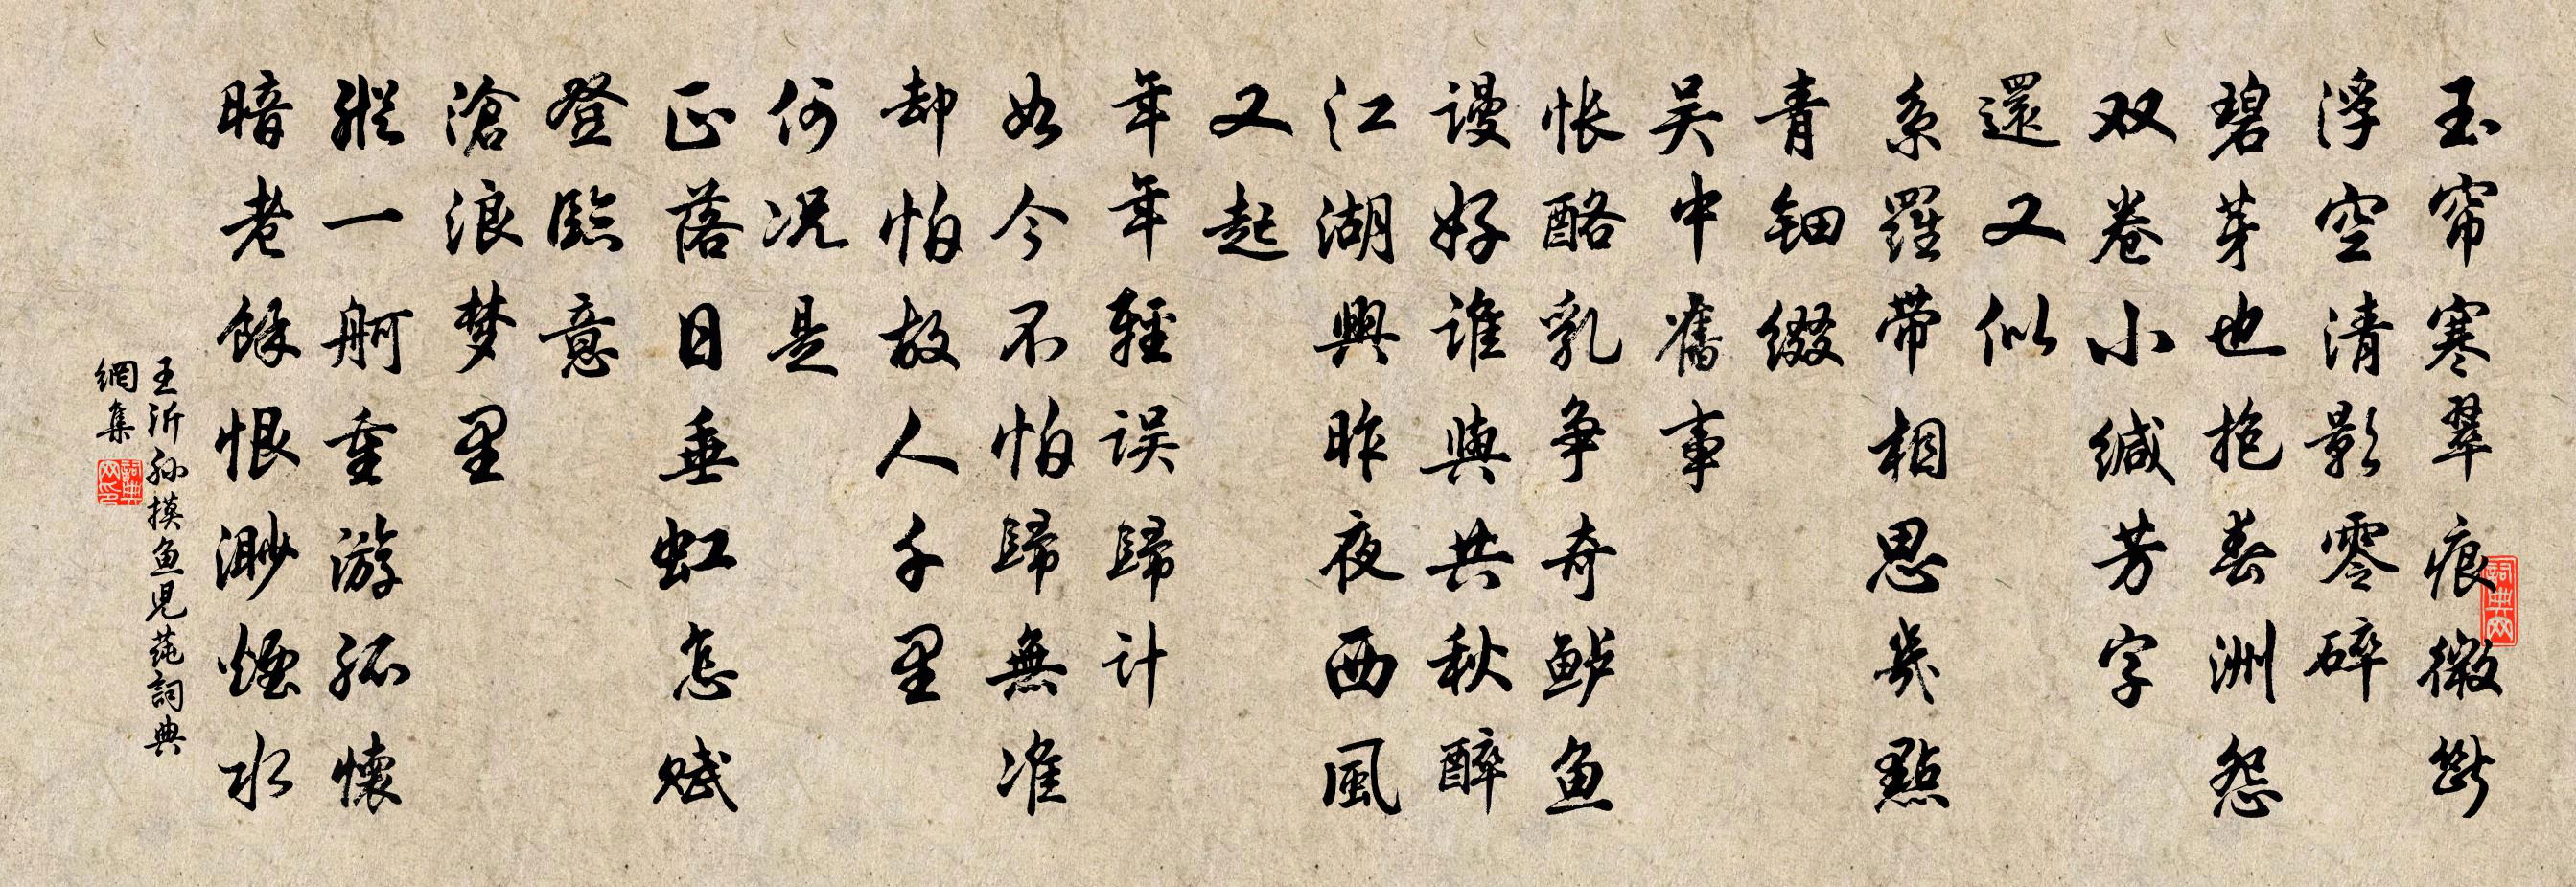 玉帘寒翠痕微斷
浮空清影零碎
碧芽也抱春洲怨
双卷小缄芳字
還又似
系羅带相思幾點
青钿缀
吴中舊事
怅酪乳争奇鲈鱼
谩好谁與共秋醉
江湖興昨夜西風
又起
年年輕误歸计
如今不怕歸無准
却怕故人千里
何况是
正落日垂虹怎赋
登臨意
滄浪梦里
縱一舸重游孤懷
暗老餘恨渺煙水
王沂孙摸鱼児莼詞典
網集
詞典网
詞典网印